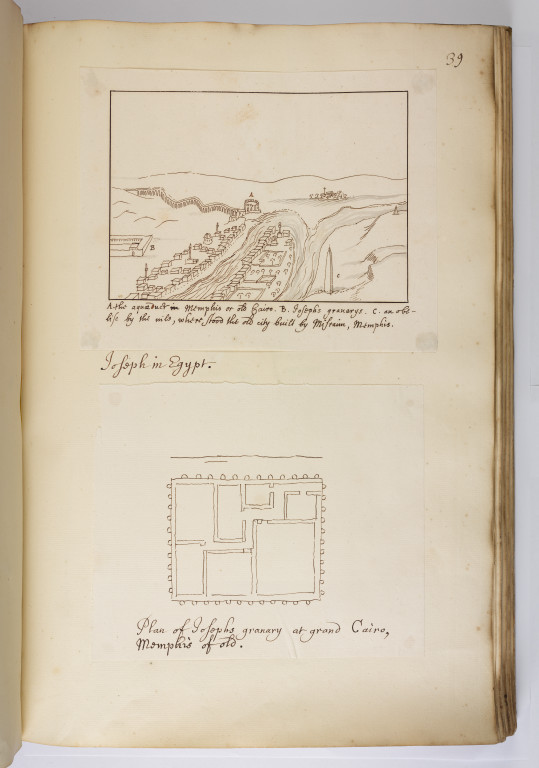 39
A
B
C
A. the aquaduct in Memphis or old Cairo. B. Josephs granarys. C. an obe-
lisc by the nile, where stood the old city built by Misraim, Memphis.
Joseph in Egypt.
Plan of Josephs granary at grand Cairo,
Memphis of old.